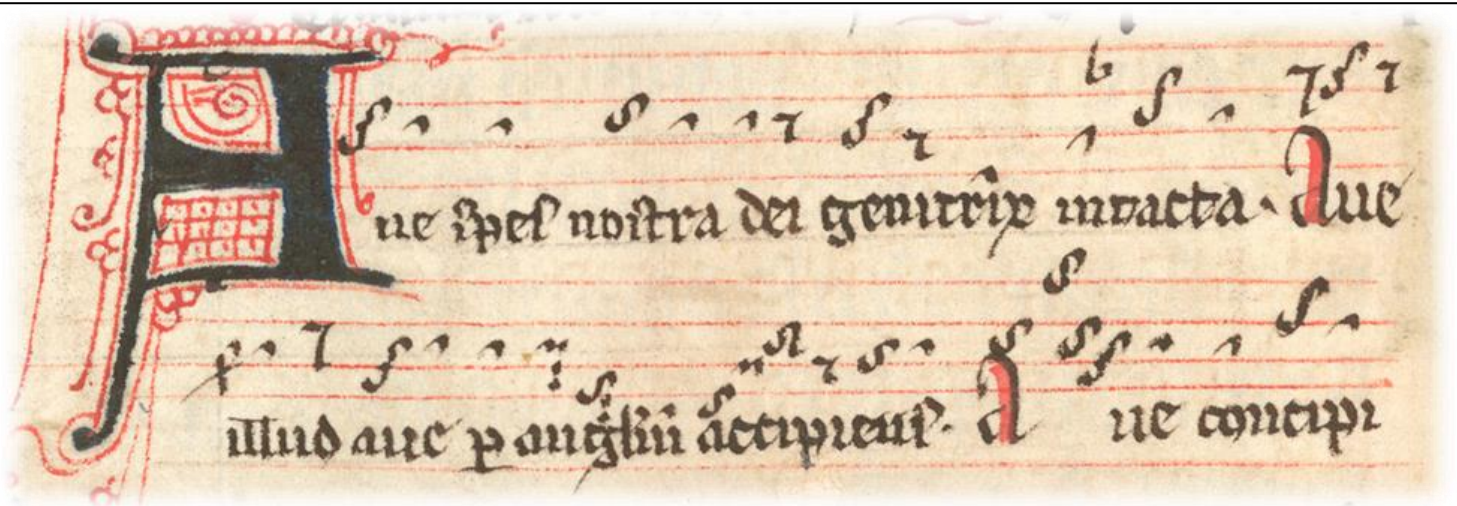 Aue spes nostra dei genitrix intacta. Aue
illud aue p angłm accipiens. Aue concipi